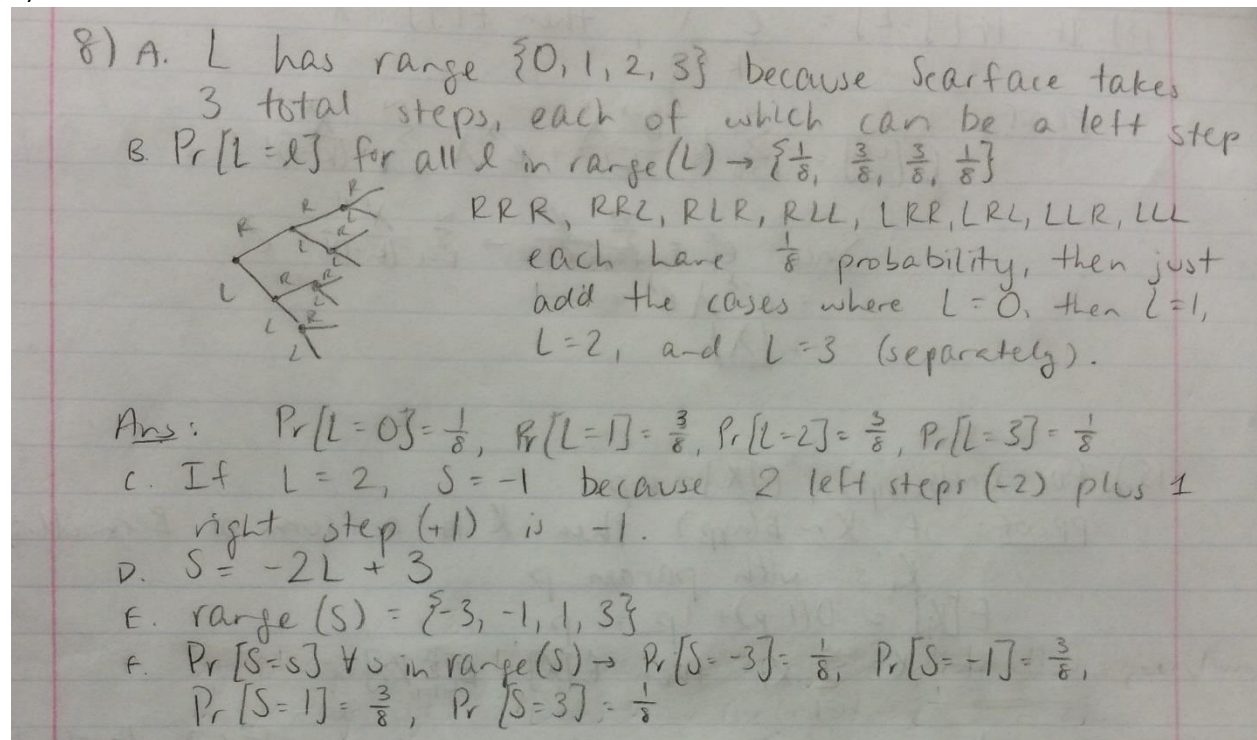 8) A. L has range {0, 1, 2, 3} because Scarface takes
3 total steps, each of which can be a left step
B. Pr[L = l] for all l in range(L) → {1/8, 3/8, 3/8, 1/8}
R R R R L L R L R L R L R L
RRR, RRL, RLR, RLL, LRR, LRL, LLR, LLL
each have 1/8 probability, then just
add the cases where L = 0, then L = 1,
L = 2, and L = 3 (separately).
Ans: Pr[L = 0] = 1/8, Pr[L = 1] = 3/8, Pr[L = 2] = 3/8, Pr[L = 3] = 1/8
C. If L = 2, S = -1 because 2 left steps (-2) plus 1
right step (+1) is -1.
D. S = -2L + 3
E. range(S) = {-3, -1, 1, 3}
F. Pr[S = s] ∀ s in range(S) → Pr[S = -3] = 1/8, Pr[S = -1] = 3/8,
Pr[S = 1] = 3/8, Pr[S = 3] = 1/8